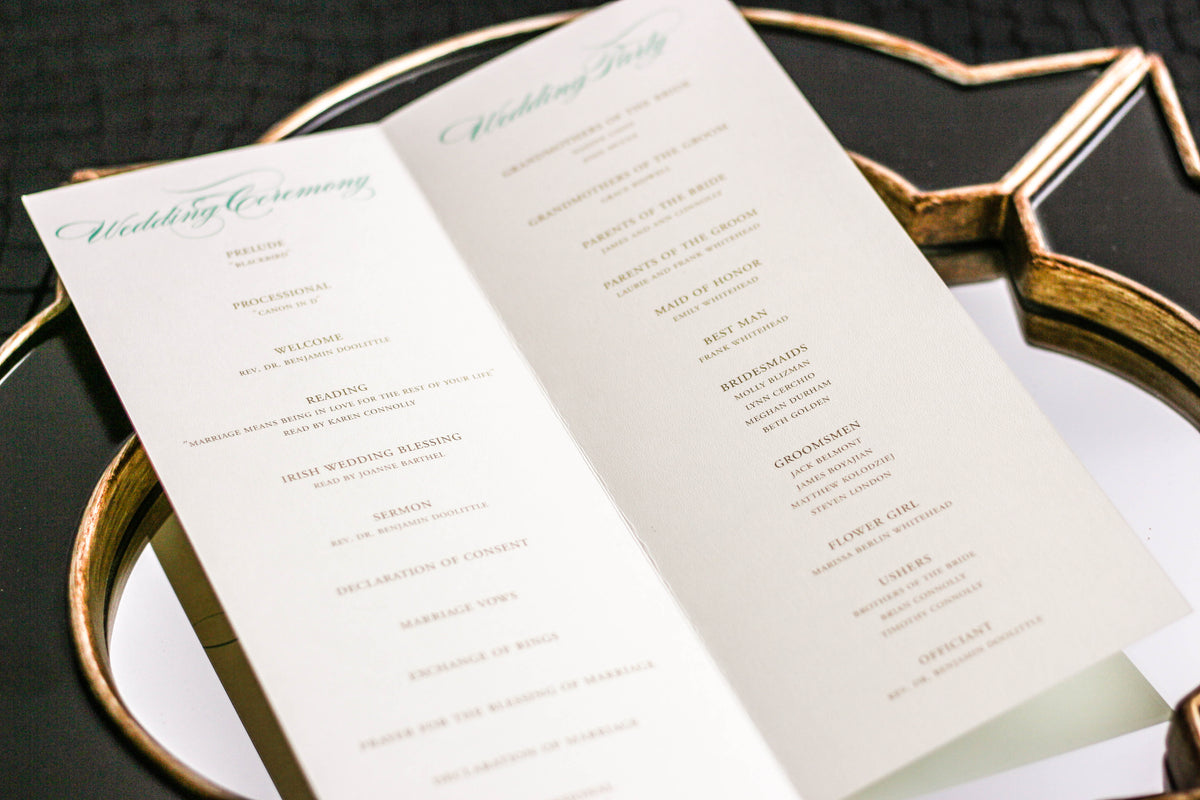 Wedding Ceremony
PRELUDE
"BLACKBIRD"
PROCESSIONAL
"CANON IN D"
WELCOME
REV. DR. BENJAMIN DOOLITTLE
READING
"MARRIAGE MEANS BEING IN LOVE FOR THE REST OF YOUR LIFE"
READ BY KAREN CONNOLLY
IRISH WEDDING BLESSING
READ BY JOANNE BARTHEL
SERMON
REV. DR. BENJAMIN DOOLITTLE
DECLARATION OF CONSENT
MARRIAGE VOWS
EXCHANGE OF RINGS
PRAYER FOR THE BLESSING OF MARRIAGE
DECLARATION OF MARRIAGE
Wedding Party
GRANDMOTHERS OF THE BRIDE
GRANDMOTHERS OF THE GROOM
PARENTS OF THE BRIDE
JAMES AND ANN CONNOLLY
PARENTS OF THE GROOM
LAURIE AND FRANK WHITEHEAD
MAID OF HONOR
EMILY WHITEHEAD
BEST MAN
FRANK WHITEHEAD
BRIDESMAIDS
MOLLY BLIZMAN
LYNN CERCHIO
MEGHAN DURHAM
BETH GOLDEN
GROOMSMEN
JACK BELMONT
JAMES BOYAJIAN
MATTHEW KOLODZIEJ
STEVEN LONDON
FLOWER GIRL
MARISSA BERLIN WHITEHEAD
USHERS
BROTHERS OF THE BRIDE
BRIAN CONNOLLY
TIMOTHY CONNOLLY
OFFICIANT
REV. DR. BENJAMIN DOOLITTLE